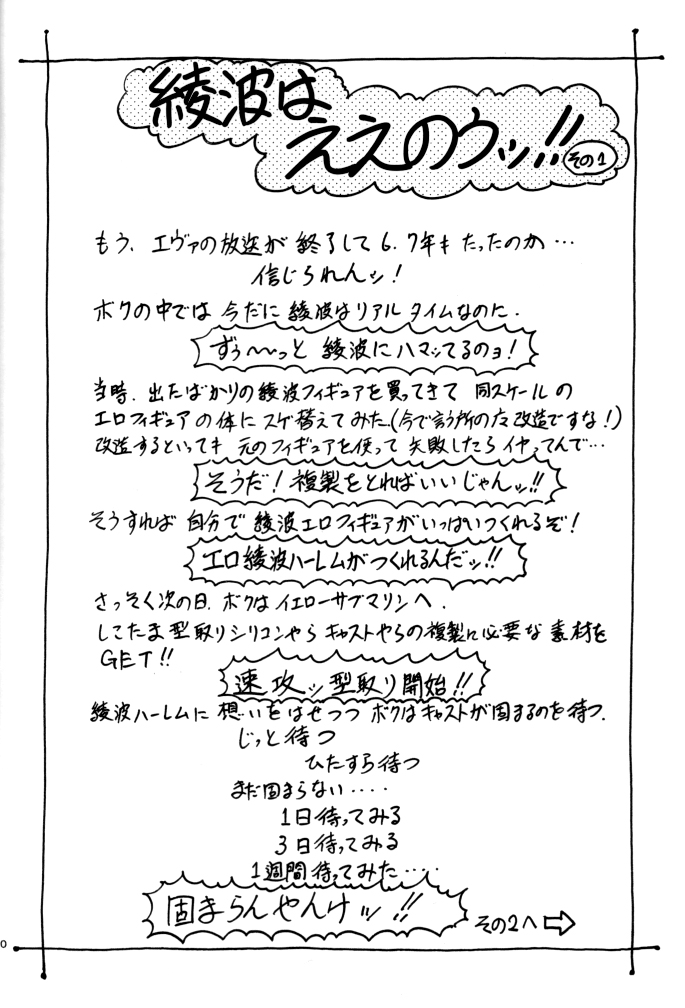 綾波は
ええのウッ!!
その1
もう、エヴァの放送が終了して6.7年もたったのか…
信じられんッ!
ボクの中では今だに綾波はリアルタイムなのに.
ずぅ〜〜っと 綾波にハマッてるのョ!
当時.出たばかりの綾波フィギュアを買ってきて 同スケールの
エロフィギュアの体にスゲ替えてみた.(今で言う所の 改造ですな!)
改造するといっても 元のフィギュアを使って 失敗したらイヤってんで…
そうだ!複製をとればいいじゃんッ!!
そうすれば 自分で 綾波エロフィギュアがいっぱいつくれるぞ!
エロ綾波ハーレムがつくれるんだッ!!
さっそく次の日.ボクはイエローサブマリンへ.
しこたま型取りシリコンやらキャストやらの複製に必要な素材を
GET!!
速攻ッ型取り開始!!
綾波ハーレムに想いをはせつつ ボクはキャストが固まるのを待つ.
じっと待つ
ひたすら待つ
まだ固まらない‥‥
1日待ってみる
3日待ってみる
1週間待ってみた‥‥
固まらんやんけッ!!
その2へ⇨
0